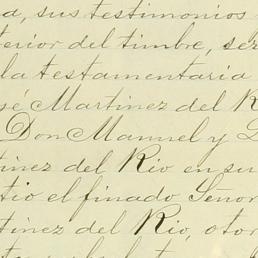 a, sus testimonios
terior del timbre, se
la testamentaria
sé Martinez del R
Don Manuel y
tinez del Rio en su
tio el finado Señor
tinez del Rio, otor